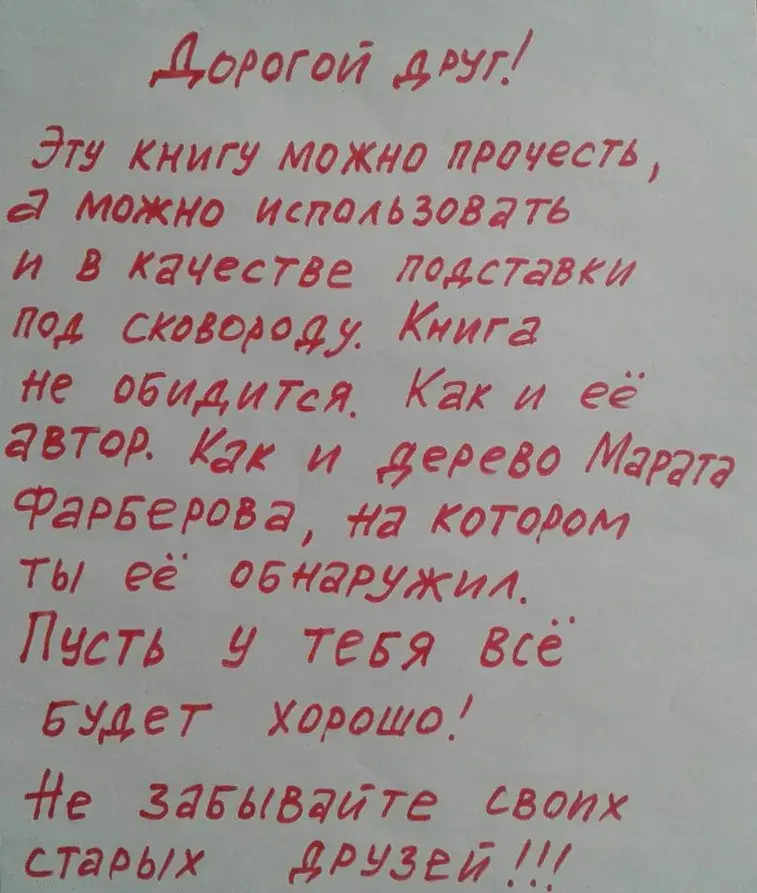 Дорогой друг!
Эту книгу можно прочесть,
а можно использовать
и в качестве подставки
под сковороду. Книга
не обидится. Как и её
автор. Как и дерево Марата
Фарберова, на котором
ты её обнаружил.
Пусть у тебя всё
будет хорошо!
Не забывайте своих
старых друзей!!!